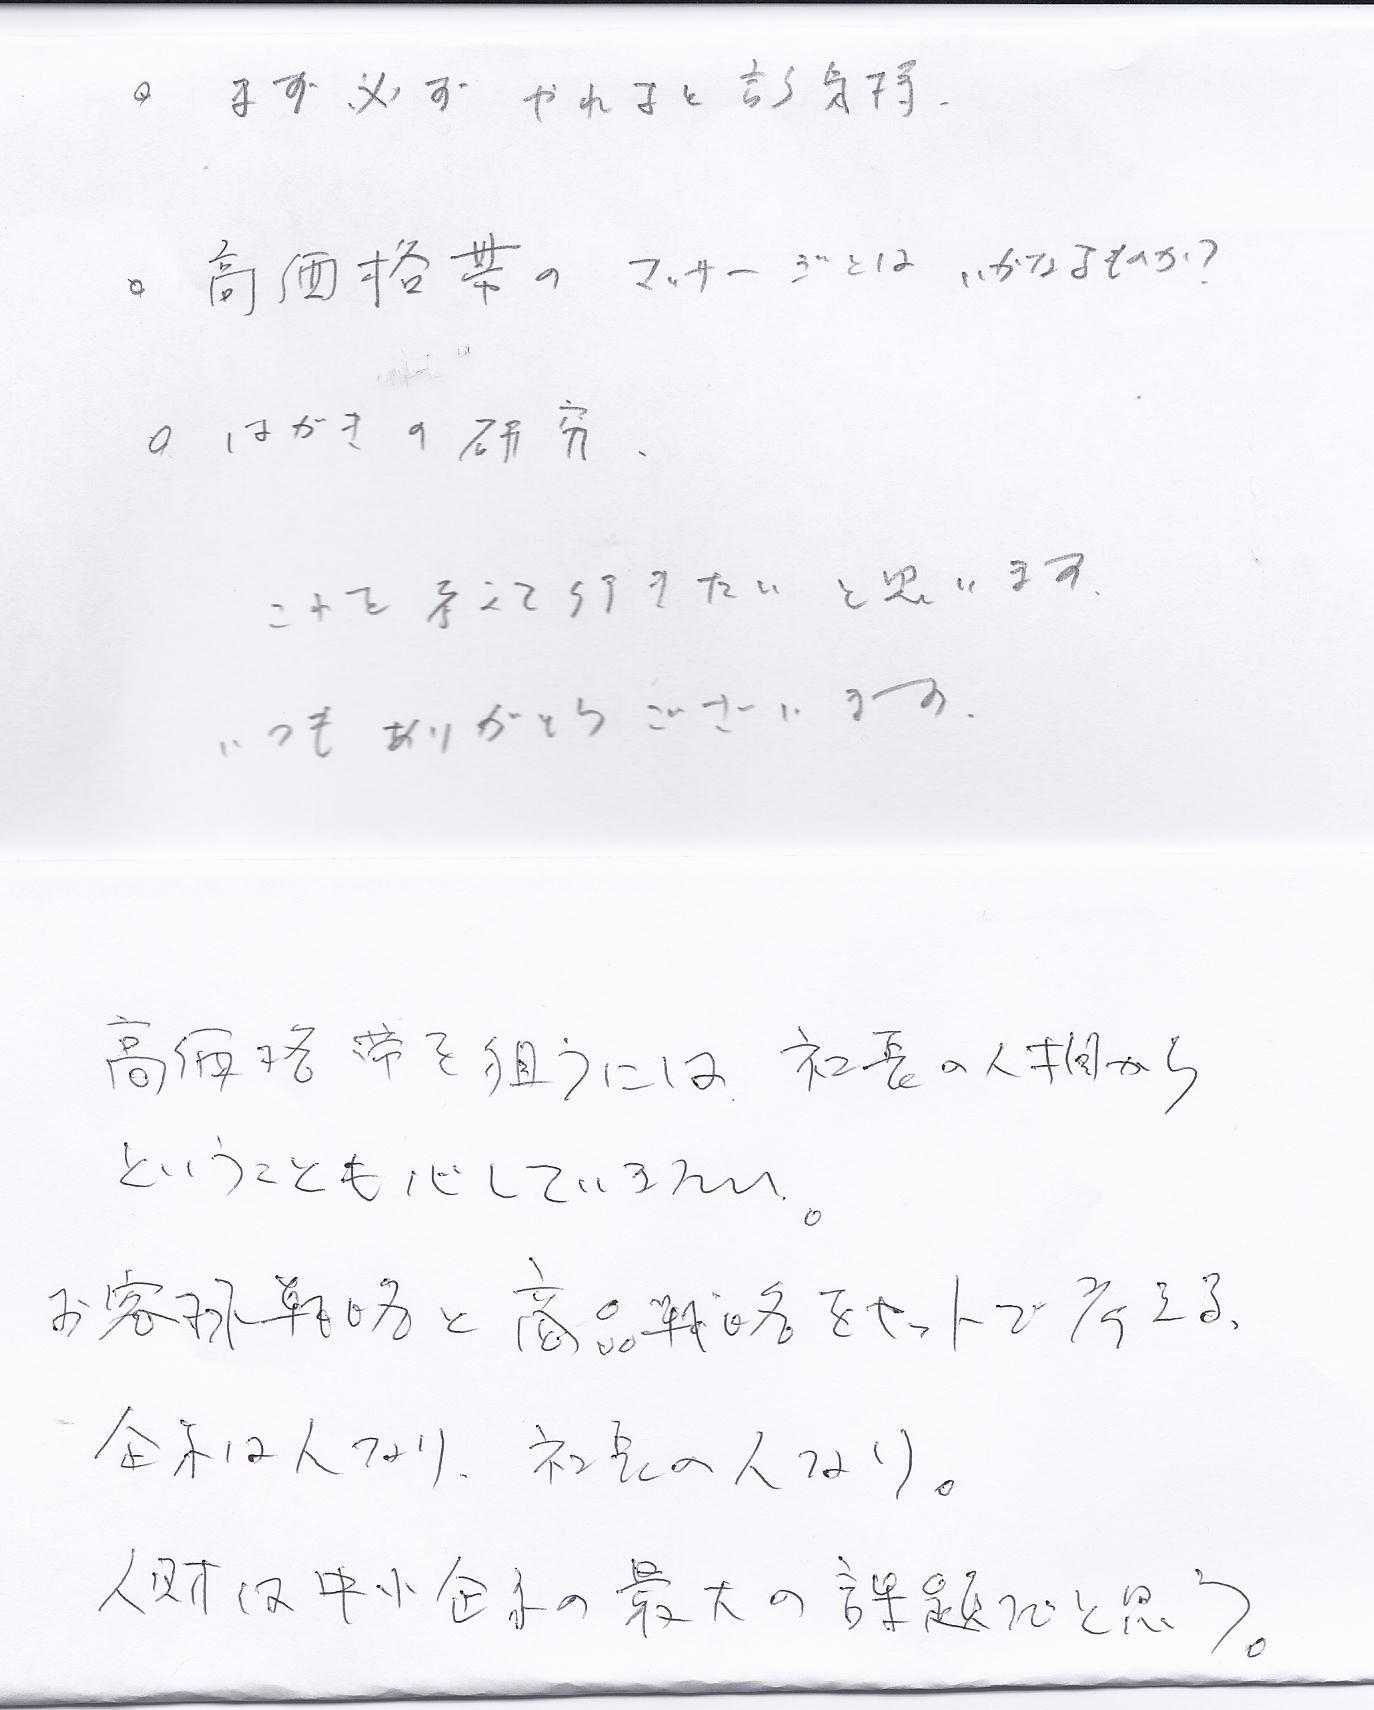 。まず必ずやれると言う気持.
。高価格帯の マッサージとは いかなるものか?
。はがきの研究.
これを考えて行きたいと思います.
いつも ありがとうございます.
高価格帯を狙うには 社長の人相から
ということも心していきたい。
お客様戦略と商品戦略をセットで考える、
企業は人なり、社長の人なり。
人財は中小企業の最大の課題だと思う。